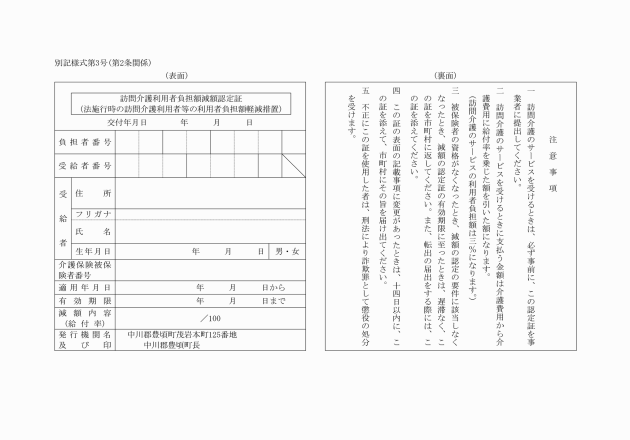 別記様式第3号(第2条関係)
(表面)
訪問介護利用者負担額減額認定証
(法施行時の訪問介護利用者等の利用者負担額軽減措置)
交付年月日　年　月　日
負担者番号
受給者番号
受給者
住所
フリガナ
氏名
生年月日　年　月　日　男・女
介護保険被保
険者番号
適用年月日　年　月　日から
有効期限　年　月　日まで
減額内容
(給付率)
／100
発行機関名
及び印
中川郡豊頃町茂岩本町125番地
中川郡豊頃町長
(裏面)
注意事項
一　訪問介護のサービスを受けるときは、必ず事前に、この認定証を事
業者に提出してください。
二　訪問介護のサービスを受けるときに支払う金額は介護費用から介
護費用に給付率を乗じた額を引いた額になります。
(訪問介護のサービスの利用者負担額は三％になります。)
三　被保険者の資格がなくなったとき、減額の認定の要件に該当しなく
なったとき、減額の認定証の有効期限に至ったときは、遅滞なく、こ
の証を市町村に返してください。また、転出の届出をする際には、こ
の証を添えてください。
四　この証の表面の記載事項に変更があったときは、十四日以内に、こ
の証を添えて、市町村にその旨を届け出てください。
五　不正にこの証を使用した者は、刑法により詐欺罪として懲役の処分
を受けます。